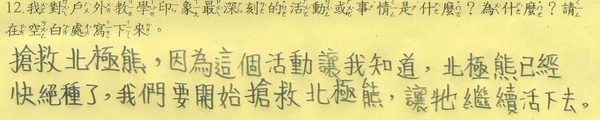 12.我對戶外教學印象最深刻的活動或事情是什麼？為什麼？請
在空白處寫下來。
搶救北極熊，因為這個活動讓我知道，北極熊已經
快絕種了，我們要開始搶救北極熊，讓牠繼續活下去。